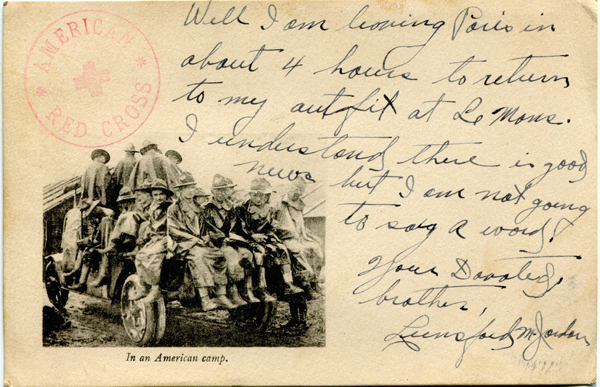 AMERICAN
RED CROSS
Well I am leaving Paris in
about 4 hours to return
to my outfit at Le Mons.
I understand there is good
news but I am not going
to say a word!
Your Devoted
brother,
Lunsford M. Jordan
In an American camp.